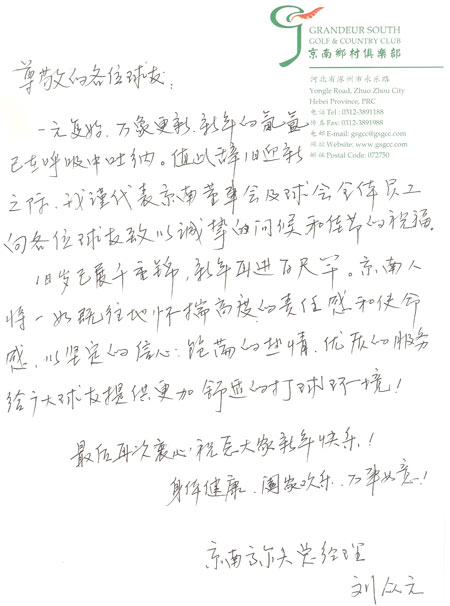 GRANDEUR SOUTH
GOLF & COUNTRY CLUB
京南鄉村俱樂部
河北省涿州市永乐路
Yongle Road, Zhuo Zhou City
Hebei Province, PRC
电话 Tel : 0312-3891188
传真 Fax: 0312-3891988
电邮 E-mail: gsgcc@gsgcc.com
网址 Website: www.gsgcc.com
邮政 Postal Code: 072750
尊敬的各位球友：
一元复始、万象更新，新年的氣氲
已在呼吸中吐纳。值此辞旧迎新
之际，我谨代表京南董事会及球会全体员工
向各位球友致以诚挚的问候和佳节的祝福。
旧岁已展千重锦，新年再进百尺竿。京南人
将一如既往地怀揣高度的责任感和使命
感，以坚定的信心、饱满的热情、优质的服务
给广大球友提供更加舒适的打球环境！
最后再次衷心祝愿大家新年快乐！
身体健康、阖家欢乐、万事如意！
京南高尔夫总经理
刘众元